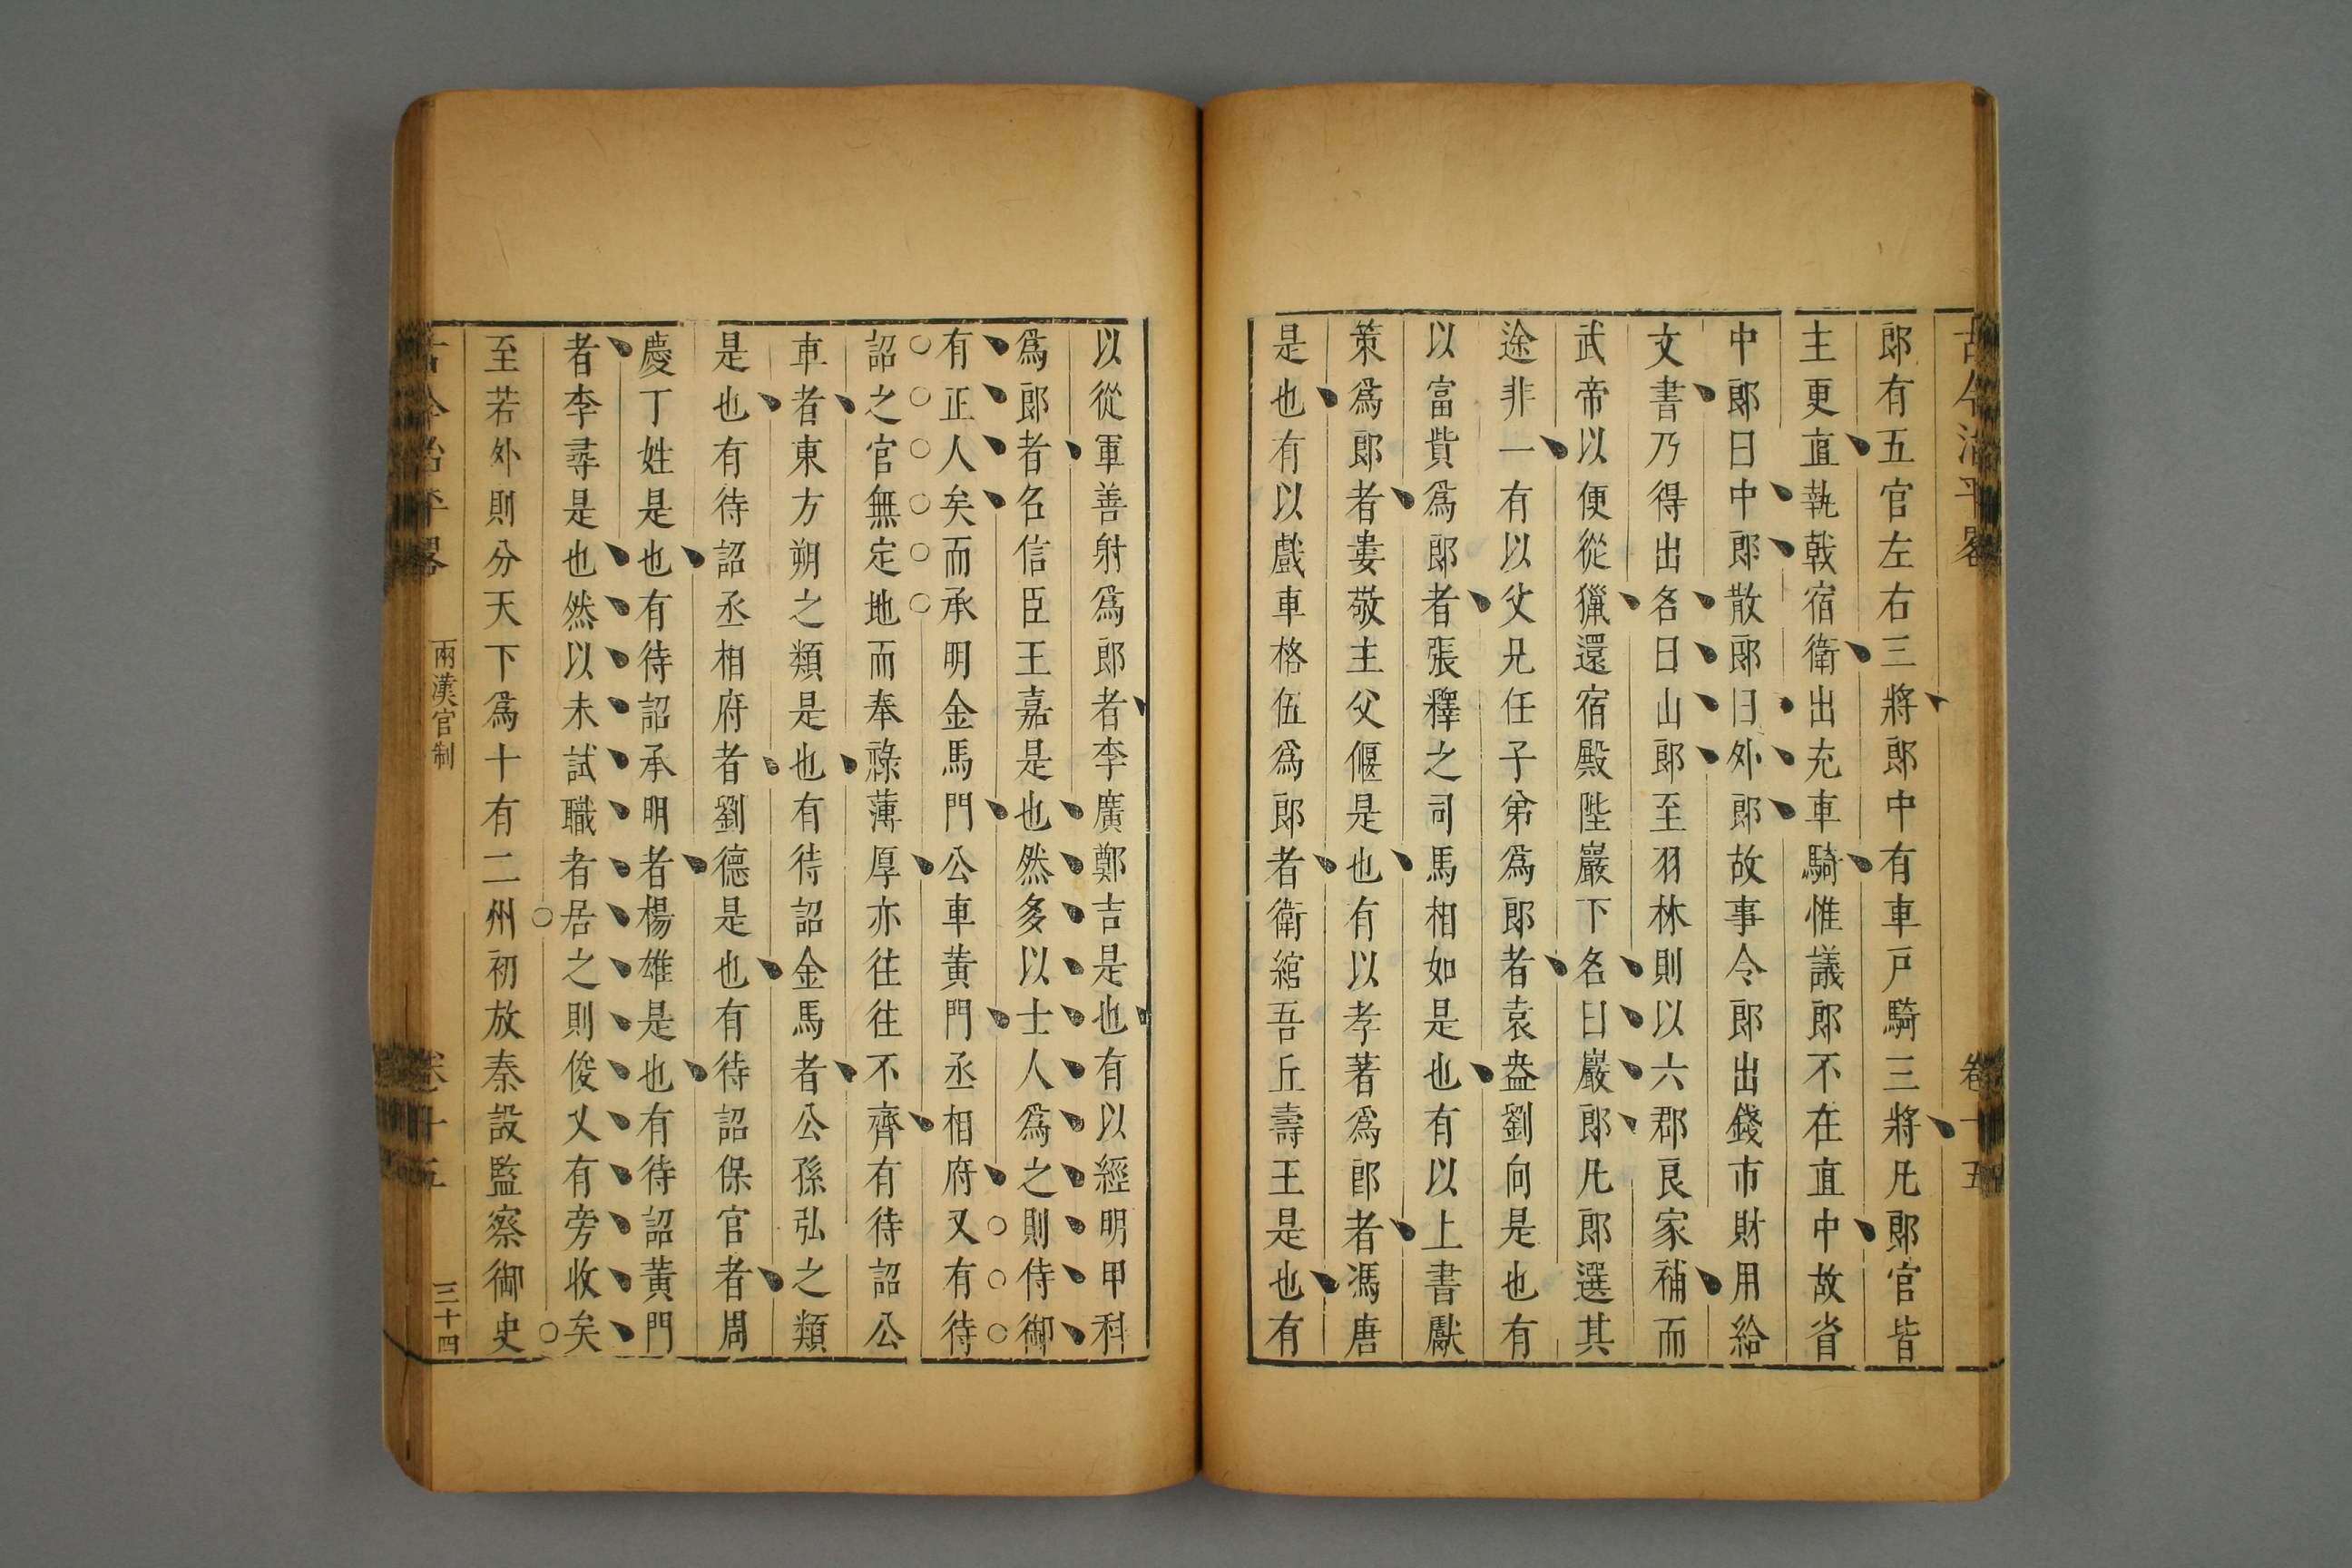 古今治平畧
卷十五
郎有五官左右三將郎中有車戸騎三將凡郎官皆
主更直執戟宿衛出充車騎惟議郎不在直中故省
中郎曰中郎散郎曰外郎故事令郎出錢市財用給
文書乃得出名曰山郎至羽林則以六郡良家補而
武帝以便從獵還宿殿陛巖下名曰巖郎凡郎選其
途非一有以父兄任子弟爲郎者袁盎劉向是也有
以富貲爲郎者張釋之司馬相如是也有以上書獻
策爲郎者婁敬主父偃是也有以孝著爲郎者馮唐
是也有以戲車格伍爲郎者衛綰吾丘壽王是也有
以從軍善射爲郎者李廣鄭吉是也有以經明甲科
爲郎者名信臣王嘉是也然多以士人爲之則侍御
有正人矣而承明金馬門公車黃門丞相府又有待
詔之官無定地而奉祿薄厚亦往往不齊有待詔公
車者東方朔之類是也有待詔金馬者公孫弘之類
是也有待詔丞相府者劉德是也有待詔保官者周
慶丁姓是也有待詔承明者楊雄是也有待詔黃門
者李尋是也然以未試職者居之則俊乂有旁收矣
至若外則分天下爲十有二州初放秦設監察御史
古今治平畧
兩漢官制
卷十五
三十四